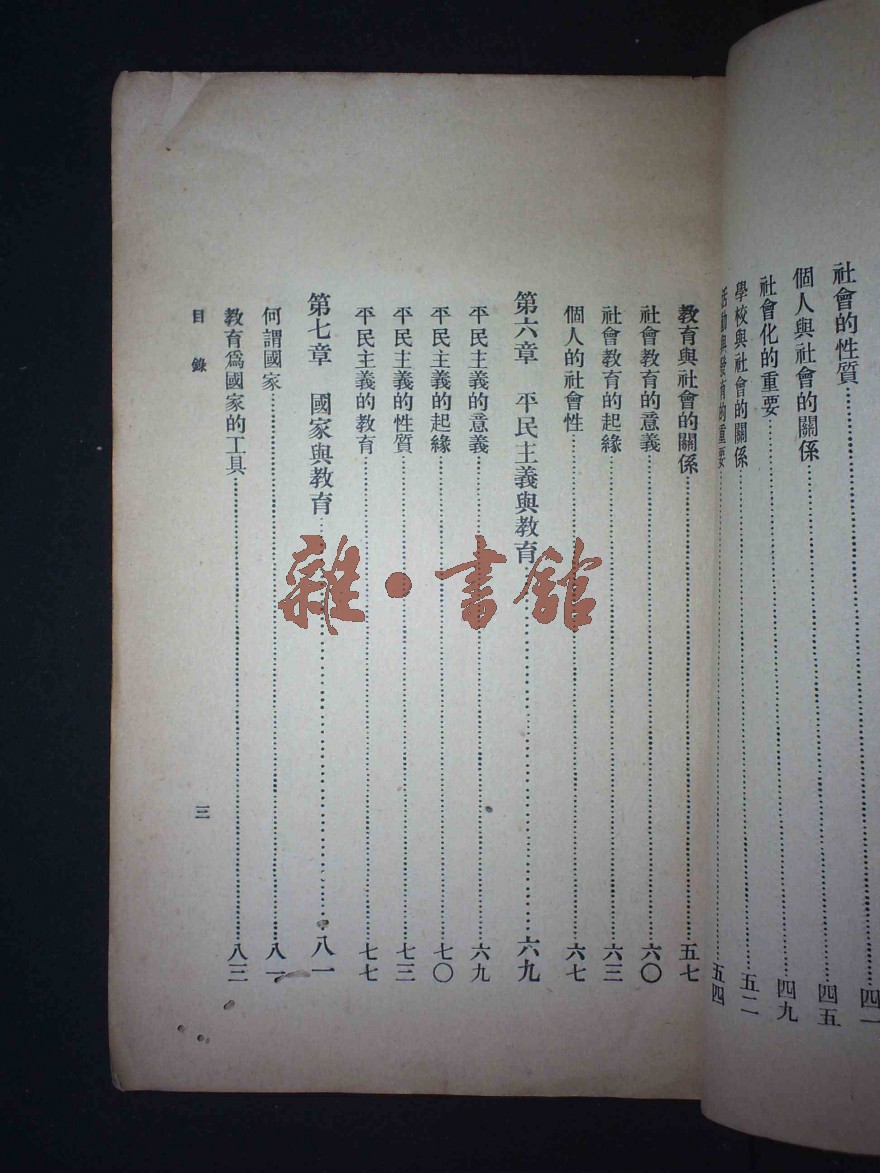 社會的性質……四一
個人與社會的關係……四五
社會化的重要……四九
學校與社會的關係……五二
活動與發育的重要……五四
教育與社會的關係……五七
社會教育的意義……六〇
社會教育的起緣……六三
個人的社會性……六七
第六章 平民主義與教育……六九
平民主義的意義……六九
平民主義的起緣……七〇
平民主義的性質……七三
平民主義的教育……七七
第七章 國家與教育……八一
何謂國家……八一
教育爲國家的工具……八三
目錄 三
雜·書館